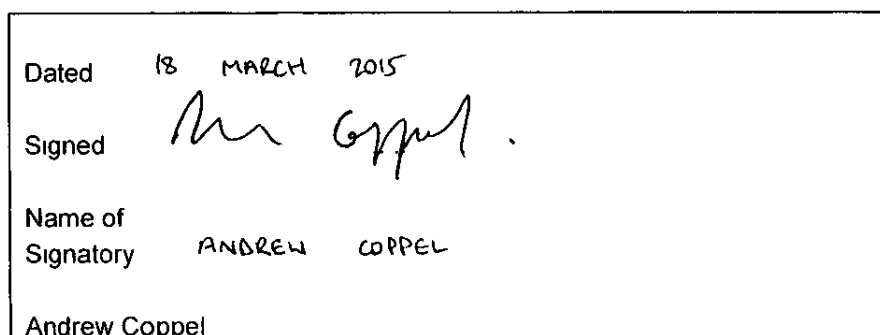 Dated 18 MARCH 2015
Signed Coppel.
Name of
Signatory ANDREW COPPEL
Andrew Coppel